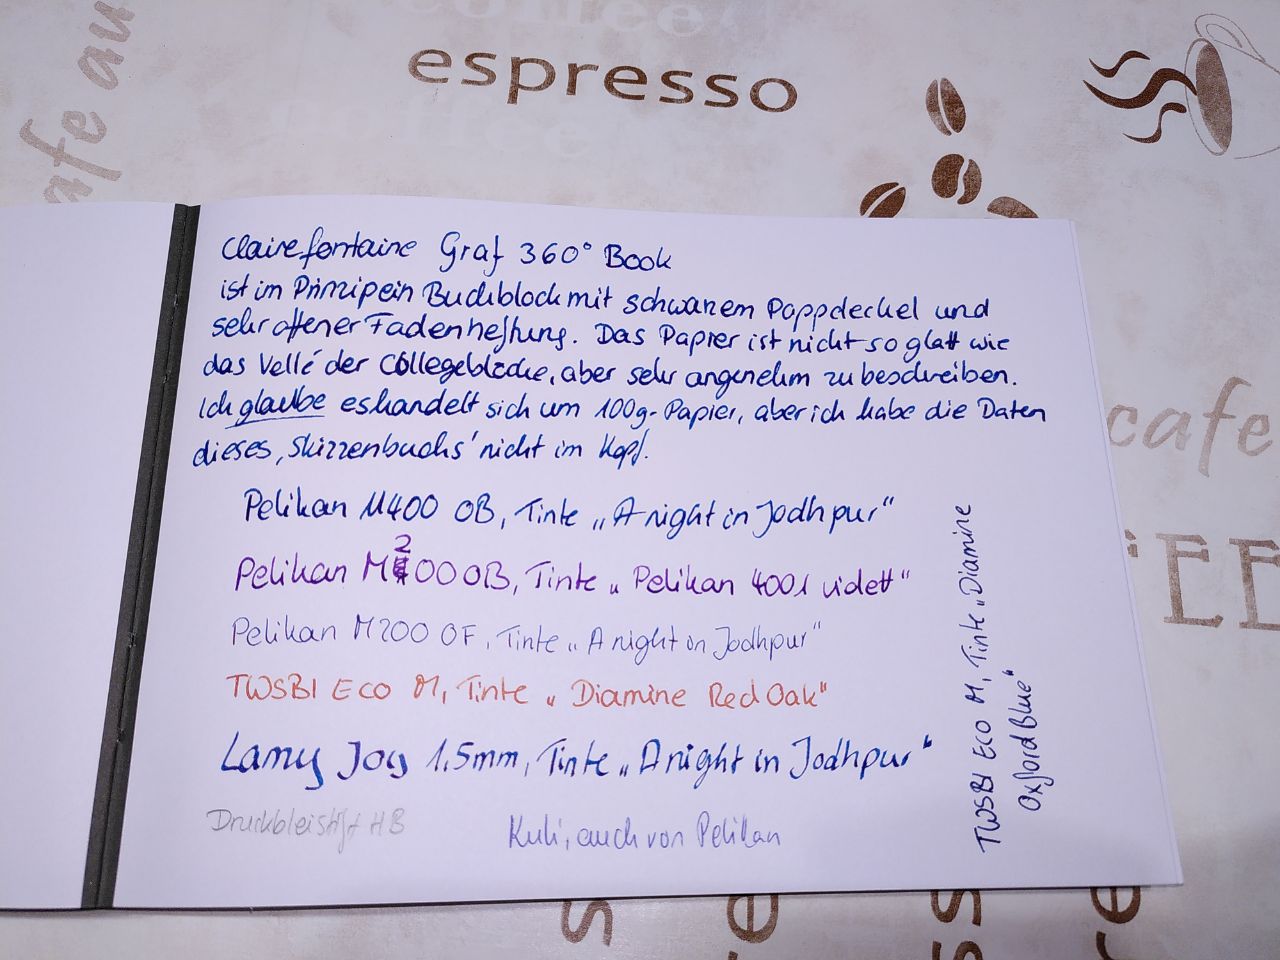 coffee
espresso
coffee
cafe au
Clairefontaine Graf 360° Book
ist im Prinzip ein Buchblock mit schwarzem Pappdeckel und
sehr offener Fadenheftung. Das Papier ist nicht so glatt wie
das Vellé der Collegeblöcke, aber sehr angenehm zu beschreiben.
Ich glaube es handelt sich um 100g-Papier, aber ich habe die Daten
dieses ‚Skizzenbuchs' nicht im Kopf.
Pelikan M400 OB, Tinte „A night in Jodhpur"
Pelikan M200 OB, Tinte „Pelikan 4001 violett"
Pelikan M200 OF, Tinte „A night in Jodhpur"
TWSBI Eco M, Tinte „Diamine Red Oak"
Lamy Joy 1,5mm, Tinte „A night in Jodhpur"
Druckbleistift HB
Kuli, auch von Pelikan
TWSBI Eco M, Tinte „Diamine
Oxford Blue"
cafe